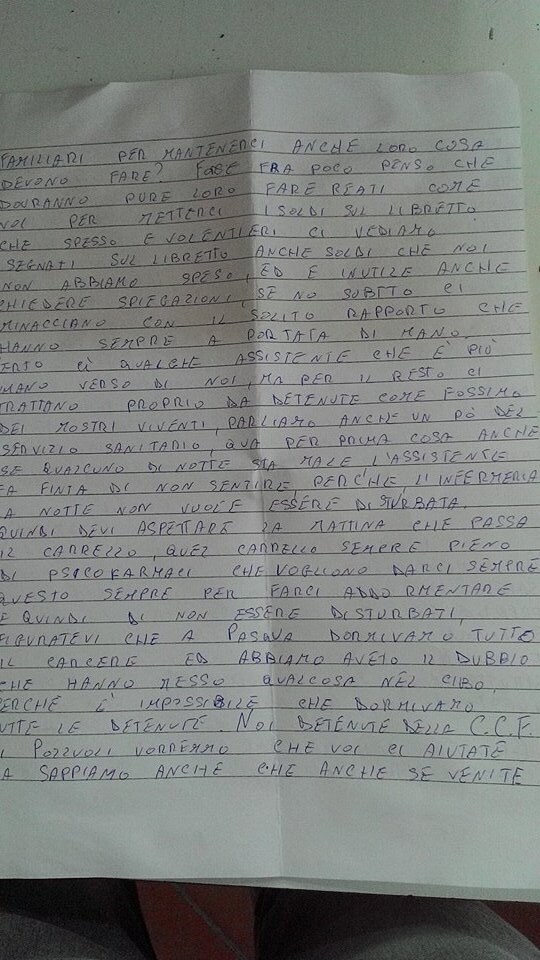 FAMILIARI PER MANTENERCI ANCHE LORO COSA
DEVONO FARE? FORSE FRA POCO PENSO CHE
DOVRANNO PURE LORO FARE REATI COME
NOI PER METTERCI I SOLDI SUL LIBRETTO.
CHE SPESSO E VOLENTIERI CI VEDIAMO
SEGNATI SUL LIBRETTO ANCHE SOLDI CHE NOI
NON ABBIAMO SPESO, ED È INUTILE ANCHE
CHIEDERE SPIEGAZIONI, SE NO SUBITO CI
MINACCIANO CON IL SOLITO RAPPORTO CHE
HANNO SEMPRE A PORTATA DI MANO.
CERTO C'È QUALCHE ASSISTENTE CHE È PIÙ
UMANO VERSO DI NOI, MA PER IL RESTO CI
TRATTANO PROPRIO DA DETENUTE COME FOSSIMO
DEI MOSTRI VIVENTI, PARLIAMO ANCHE UN PÒ DEL
SERVIZIO SANITARIO, QUA PER PRIMA COSA ANCHE
SE QUALCUNO DI NOTTE STA MALE L'ASSISTENTE
FA FINTA DI NON SENTIRE PERCHÈ L'INFERMERIA
LA NOTTE NON VUOLE ESSERE DISTURBATA.
QUINDI DEVI ASPETTARE LA MATTINA CHE PASSA
IL CARRELLO, QUEL CARRELLO SEMPRE PIENO
DI PSICOFARMACI CHE VOGLIONO DARCI SEMPRE
QUESTO SEMPRE PER FARCI ADDORMENTARE
E QUINDI DI NON ESSERE DISTURBATI,
FIGURATEVI CHE A PASQUA DORMIVAMO TUTTO
IL CARCERE ED ABBIAMO AVUTO IL DUBBIO
CHE HANNO MESSO QUALCOSA NEL CIBO,
PERCHÈ È IMPOSSIBILE CHE DORMIVAMO
TUTTE LE DETENUTE. NOI DETENUTE DELLA C.C.F.
DI POZZUOLI VORREMMO CHE VOI CI AIUTATE
MA SAPPIAMO ANCHE CHE ANCHE SE VENITE